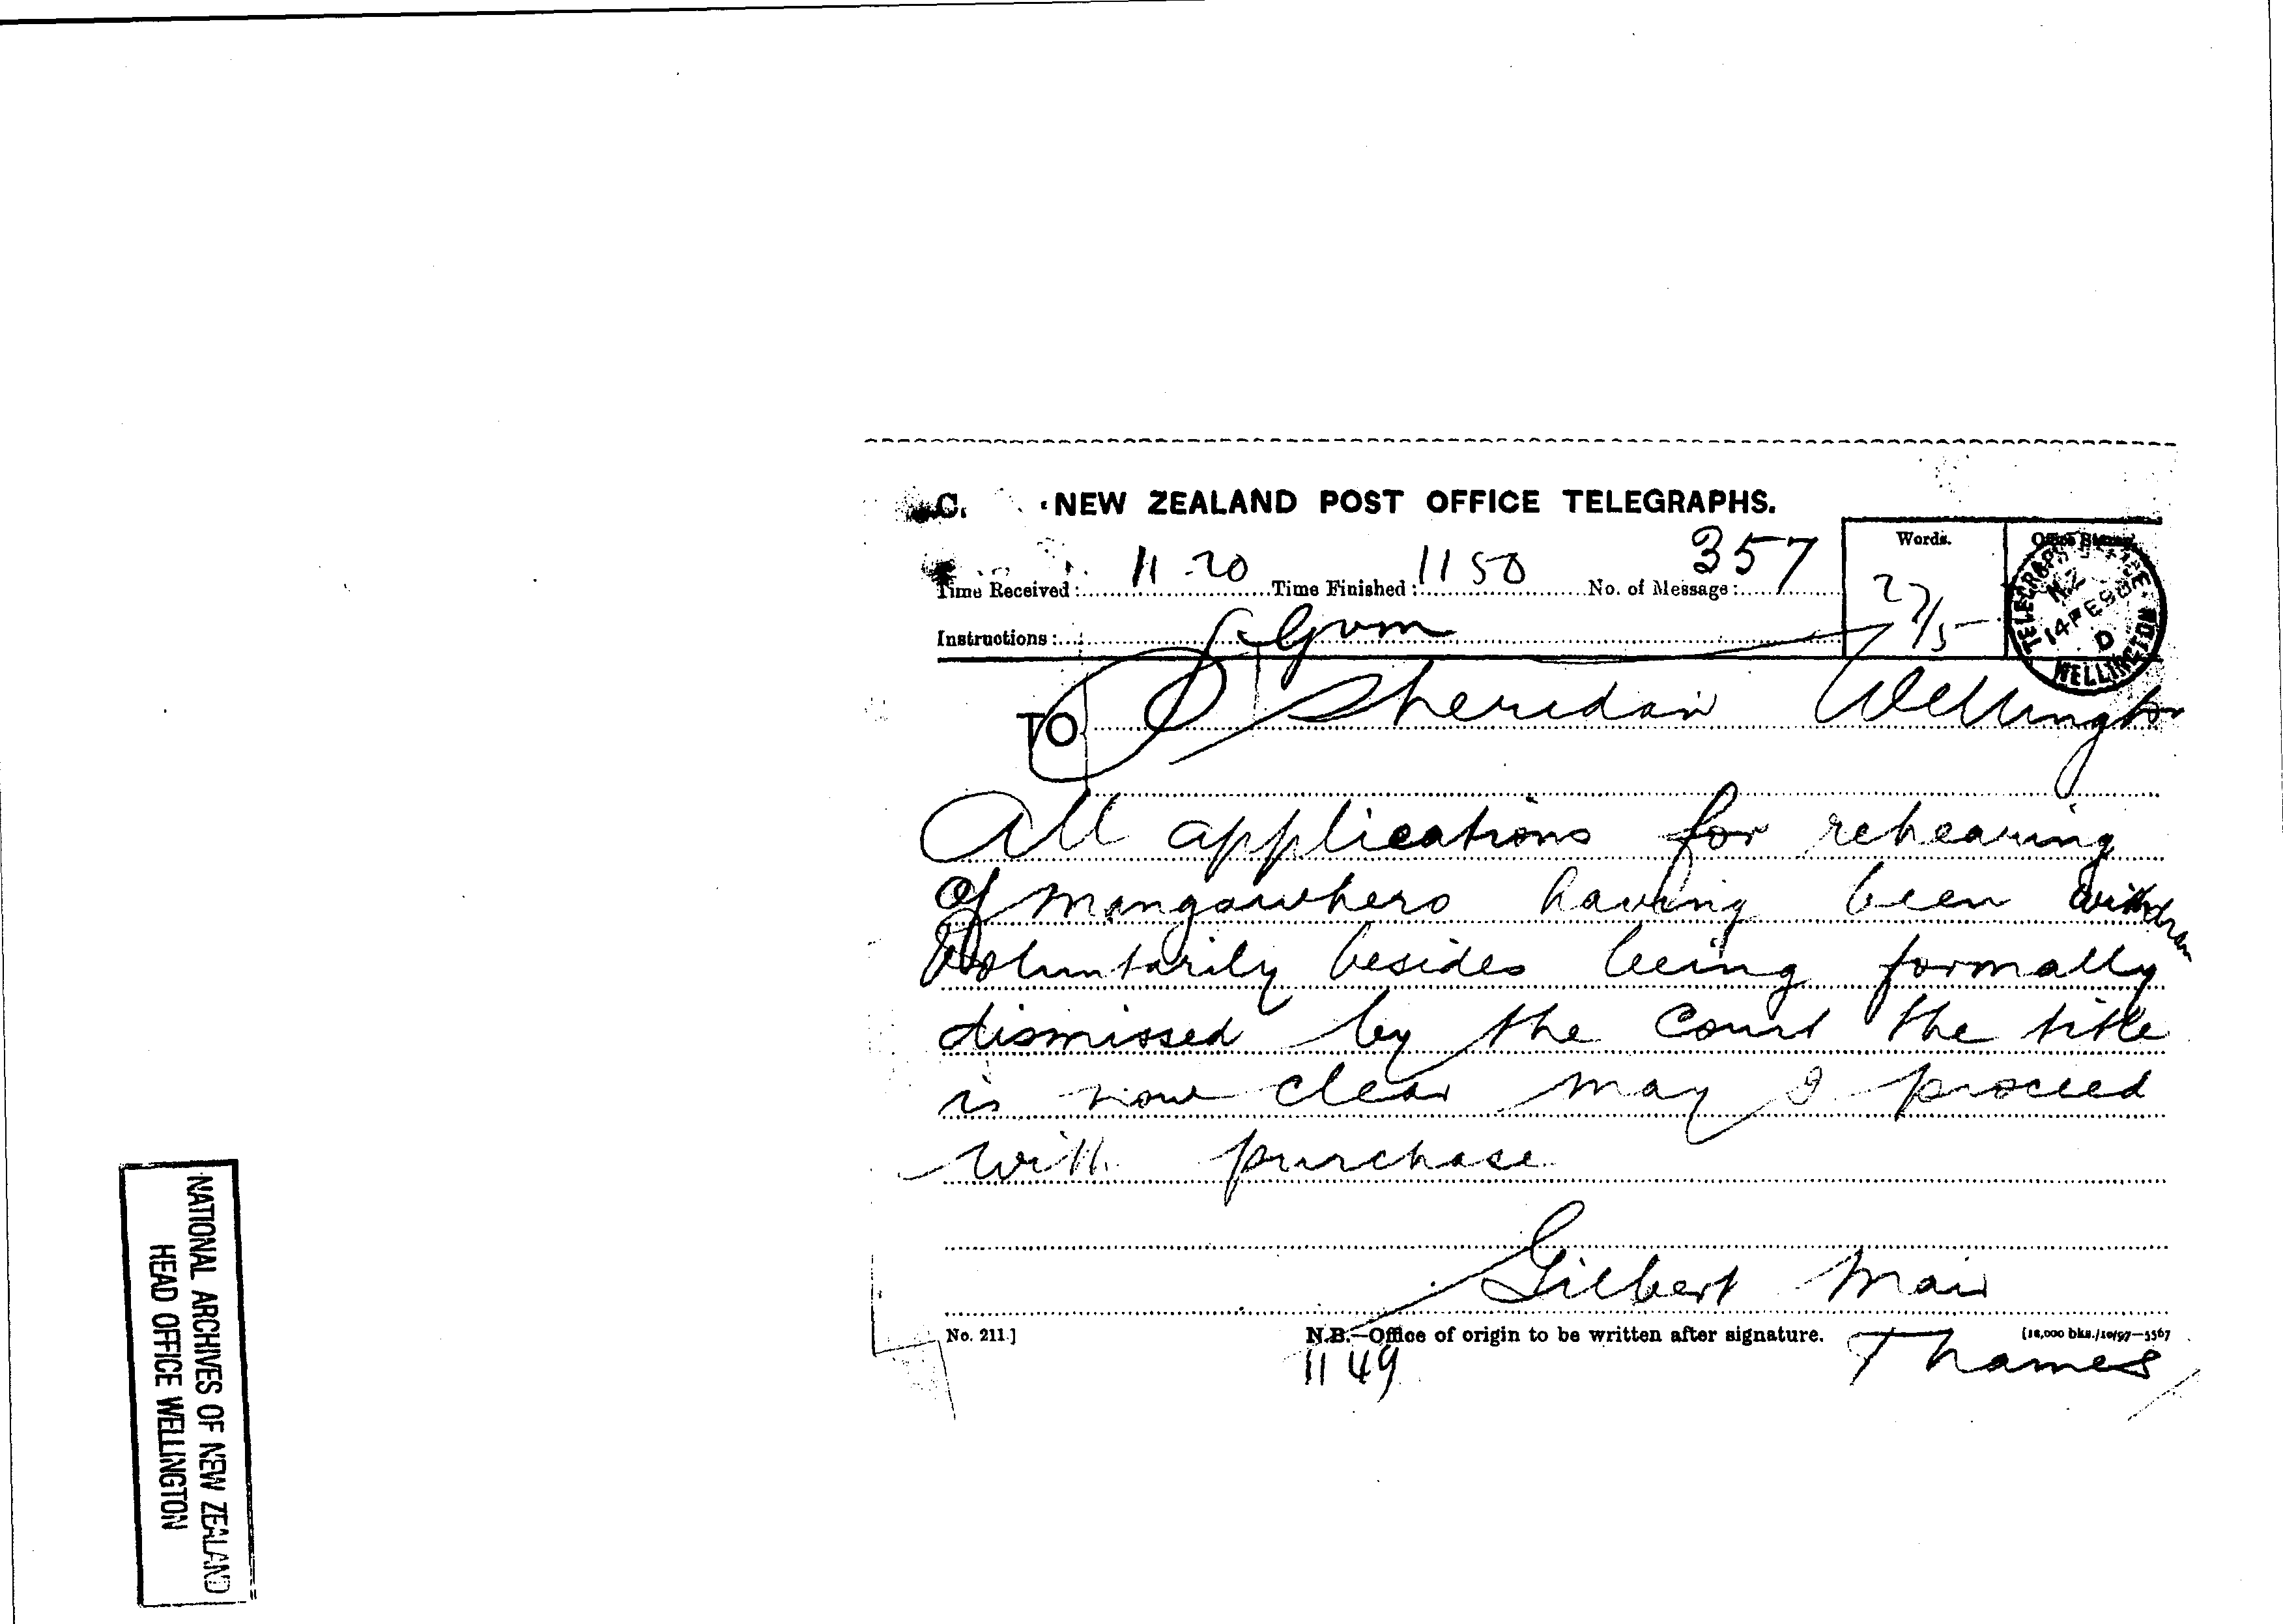 C. NEW ZEALAND POST OFFICE TELEGRAPHS.
Words.
Office Stamp.
Time Received: 11-20 Time Finished: 11 50 No. of Message: 357
27/5
TELEGRAPH OFFICE
N.Z
14 FE 98
D
WELLINGTON
Instructions:
TO P Sheridan Wellington
All applications for rehearing
of mangawhero having been withdran
Voluntarily besides being formally
dismissed by the Court the title
is now clear may I proceed
with purchase
Gilbert Mair
No. 211.] N.B.—Office of origin to be written after signature. [18,000 bks./10/97—3567
11 49 Thames
NATIONAL ARCHIVES OF NEW ZEALAND
HEAD OFFICE WELLINGTON